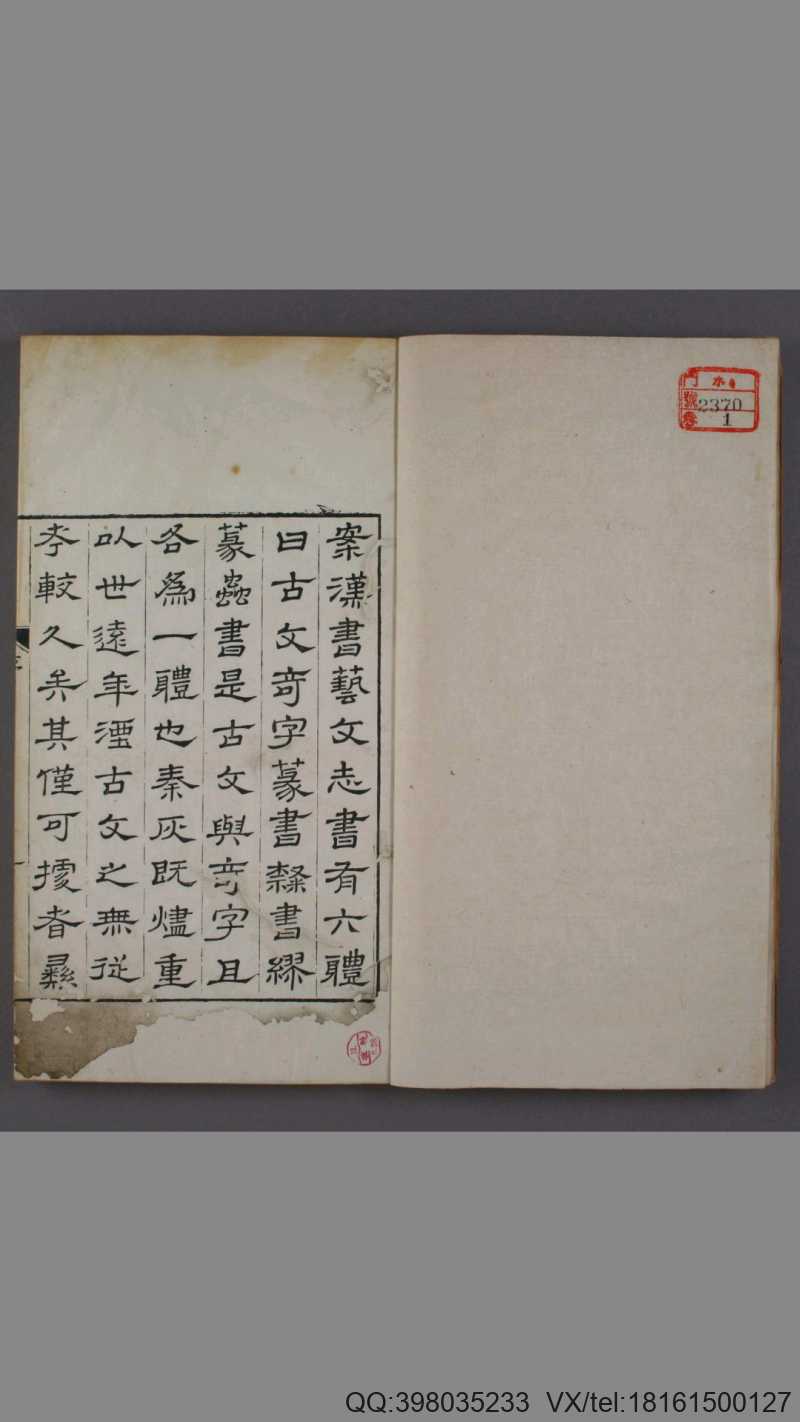 案漢書藝文志書有六體
曰古文奇字篆書隸書繆
篆蟲書是古文與奇字且
各爲一體也秦灰既燼重
以世遠年湮古文之無従
孝較久矣其僅可據者彝
門
號 2370
卷 1
QQ:398035233 VX/tel:18161500127